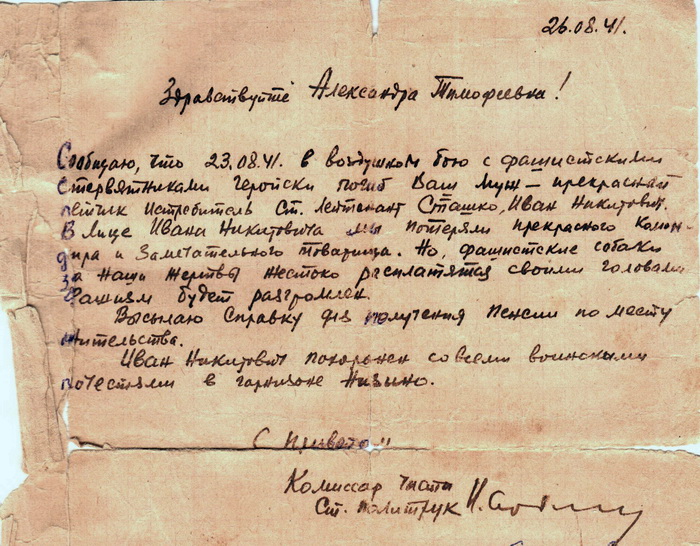 26.08.41.
Здравствуйте Александра Тимофеевна!
Сообщаю, что 23.08.41. в воздушном бою с фашистскими
стервятниками геройски погиб Ваш муж — прекрасный
летчик истребитель Ст. лейтенант Сташко, Иван Никитович.
В лице Ивана Никитовича мы потеряли прекрасного коман-
дира и замечательного товарища. Но, фашистские собаки
за наши жертвы жестоко расплатятся своими головами
Фашизм будет разгромлен.
Высылаю справку для получения пенсии по месту
жительства.
Иван Никитович похоронен со всеми воинскими
почестями в гарнизоне Низино.
С приветом
Комиссар части
Ст. политрук